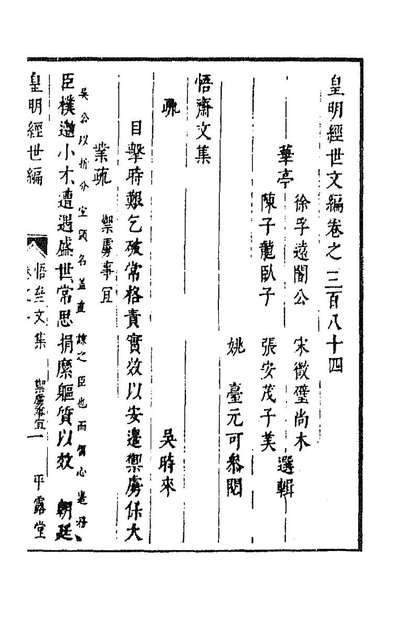 皇明經世文編卷之三百八十四
華亭
徐孚遠闇公
陳子龍臥子
宋徵璧尚木
張安茂子美
選輯
姚臺元可參閱
悟齋文集
吳時來
疏
目擊時艱乞破常格責實效以安邊禦虜保大
業疏
禦虜事宜
吳公以指分宜頭名蓋直諫之臣也而留心邊務
臣樸遬小才遭遇盛世常思捐糜軀質以效朝廷
皇明經世編
悟齋文集
禦虜事宜
一
平露堂